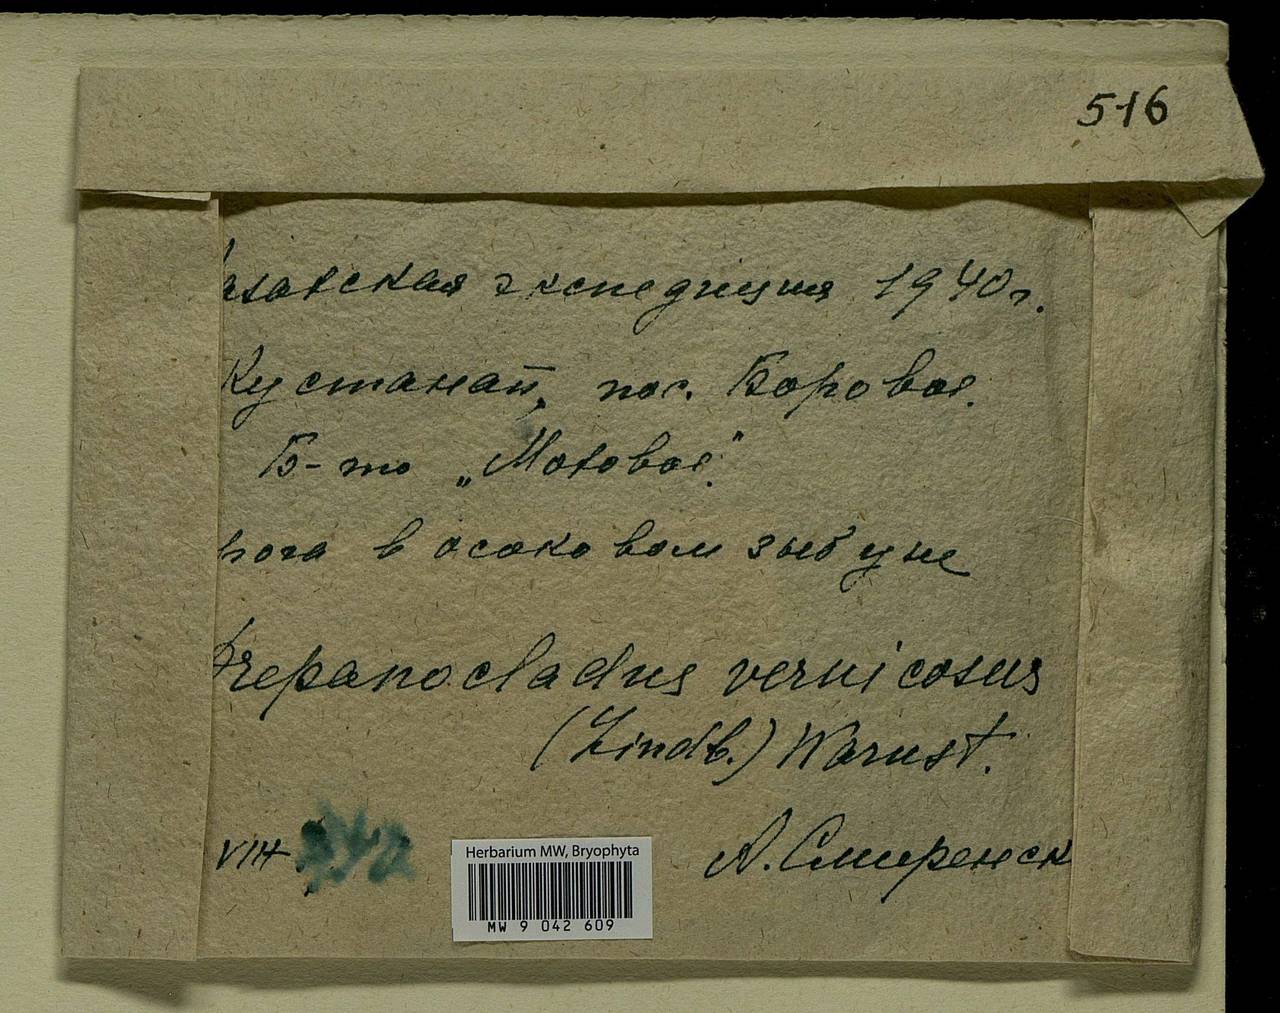 516
азахская экспедиция 1940 г.
Кустанай, пос. Боровое.
Б-то „Моховое".
рога в осоковом зыбуне
Drepanocladus vernicosus
(Lindb.) Warnst.
VIII
А. Смиренск
Herbarium MW, Bryophyta
MW 9 042 609